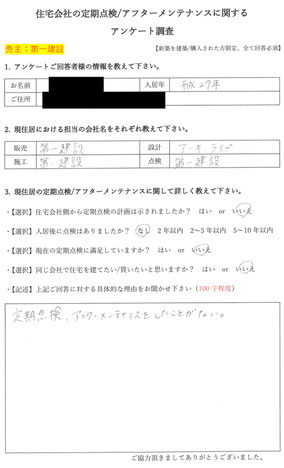 住宅会社の定期点検/アフターメンテナンスに関する
アンケート調査
売主：第一建設
【新築を建築/購入された方限定、全て回答必須】
1. アンケートご回答者様の情報を教えて下さい。
お名前 入居年 平成27年
ご住所
2. 現住居における担当の会社名をそれぞれ教えて下さい。
販売 第一建設 設計 アーキライブ
施工 第一建設 点検 第一建設
3. 現住居の定期点検/アフターメンテナンスに関して詳しく教えて下さい。
・【選択】住宅会社側から定期点検の計画は示されましたか？ はい or いいえ
・【選択】入居後に点検はありましたか？ なし 2年以内 2～5年以内 5～10年以内
・【選択】現在の定期点検に満足していますか？ はい or いいえ
・【選択】同じ会社で住宅を建てたい/買いたいと思いますか？ はい or いいえ
・【記述】上記ご回答に対する具体的な理由をお聞かせ下さい（100字程度）
定期点検、アフターメンテナンスをしたことがない。
ご協力頂きましてありがとうございました。